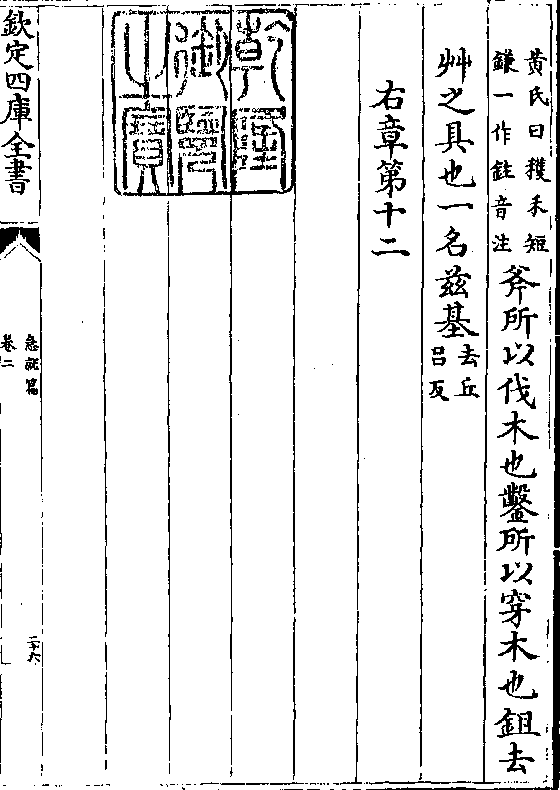 黄氏曰穫禾短
鎌一作鉒音注
斧所以伐木也鑿所以穿木也鉏去
艸之具也一名兹基
去丘
吕反
右章第十二
乾隆
御覽
之寶
欽定四庫全書
急就篇
卷二
二十六